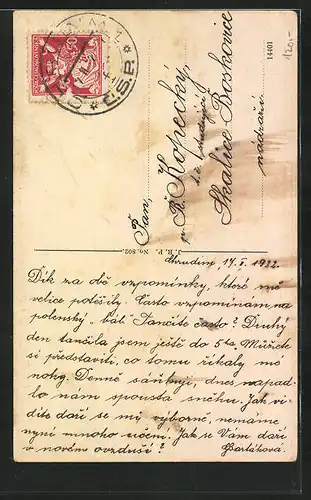 Pan,
R. Kopecký,
Skalice Boskovice
nádraží.
14401
120,-
J. R. P. No. 802.
Č.S.P.
Chrudim, 17. I. 1922.
Dík za obě vzpomínky, které mě
velice potěšily. Často vzpomínám na
polenský „bál“. Tančíte často? Druhý
den tančila jsem ještě do 5ta. Můžete
si představiti, co tomu říkaly mé
nohy. Denně sáňkuji, dnes napad-
lo nám spousta sněhu. Jak vi-
díte daří se mi výborně, nemáme
nyní mnoho učení. Jak se Vám daří
v novém ovzduší? Bartáková.